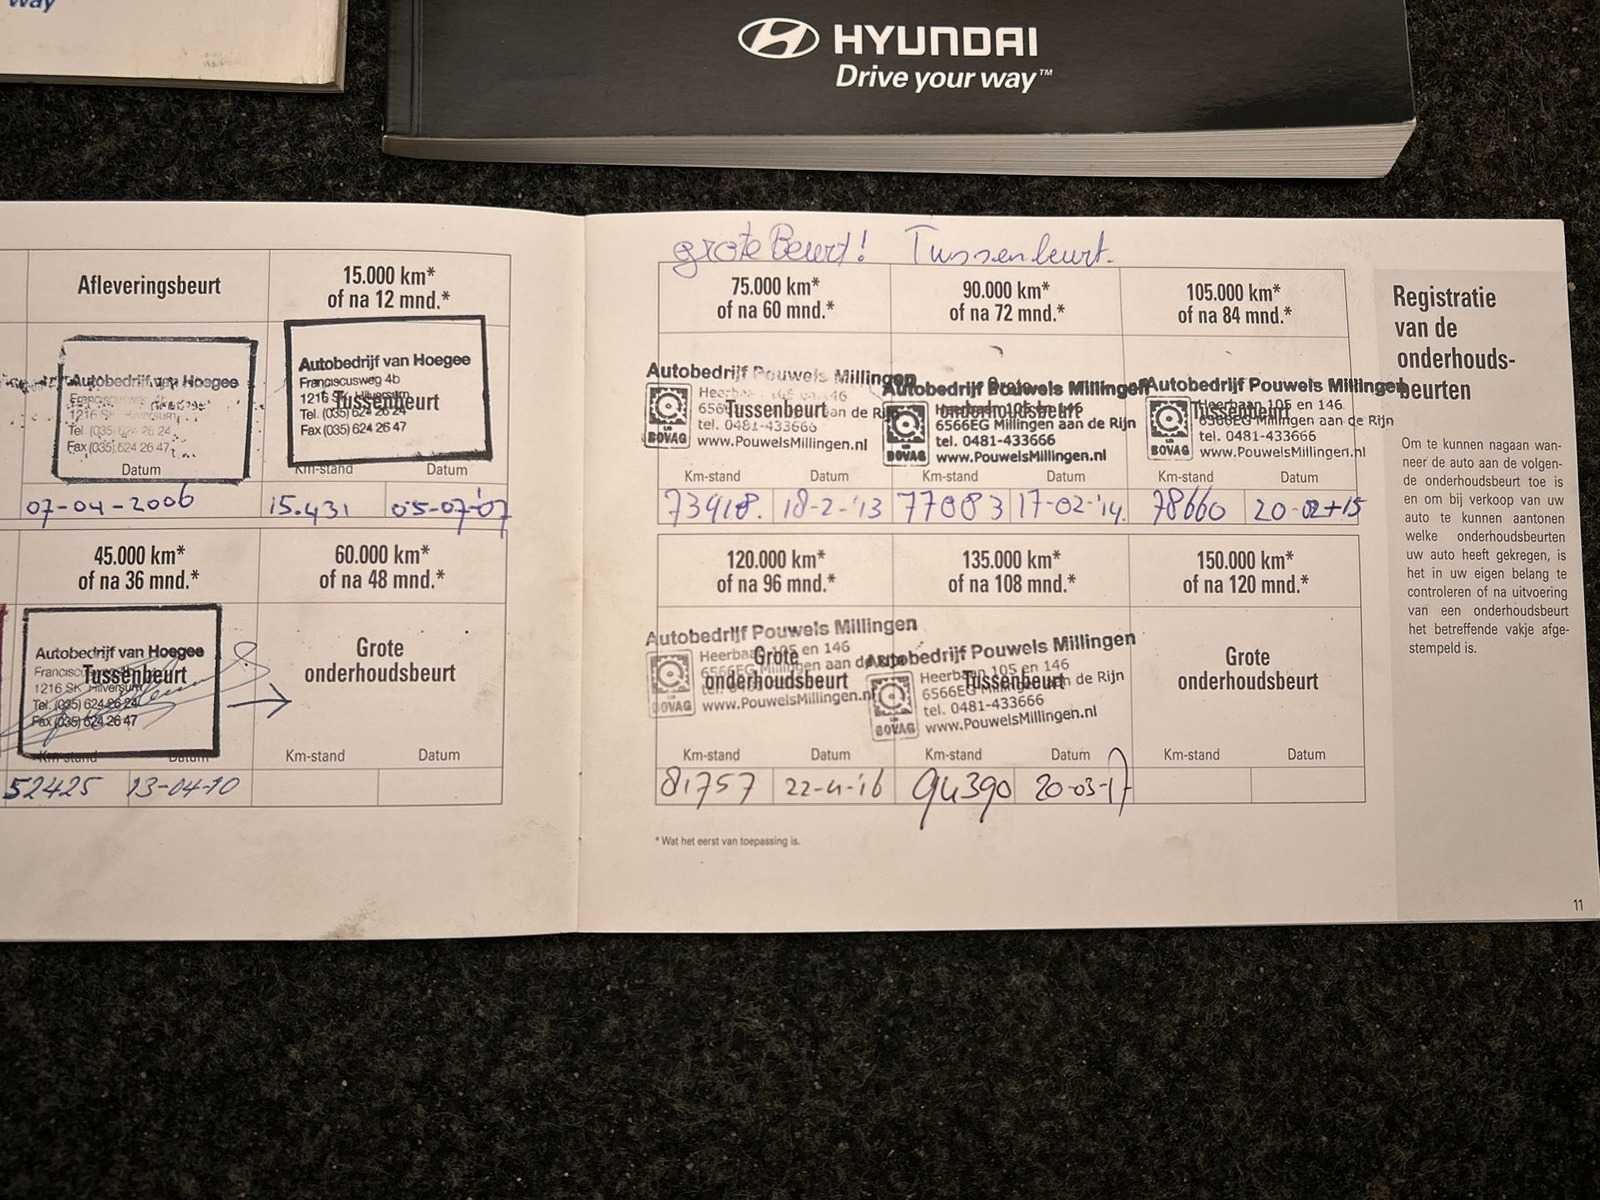 way
HYUNDAI
Drive your way™
Afleveringsbeurt
15.000 km*
of na 12 mnd.*
Autobedrijf van Hoegee
1216 SK
Tel. (035) 624 26 24
Fax (035) 624 26 47
Datum
07-04-2006
Autobedrijf van Hoegee
Franciscusweg 4b
1216 SK Hilversum
Tussenbeurt
Tel. (035) 624 26 24
Fax (035) 624 26 47
Km-stand Datum
15.431 05-07-'07
45.000 km*
of na 36 mnd.*
60.000 km*
of na 48 mnd.*
Autobedrijf van Hoegee
Tussenbeurt
1216 SK Hilversum
Tel. (035) 624 26 24
Fax (035) 624 26 47
Km-stand Datum
52425 13-04-10
Grote
onderhoudsbeurt
Km-stand Datum
grote Beurt! Tussenbeurt.
75.000 km*
of na 60 mnd.*
90.000 km*
of na 72 mnd.*
105.000 km*
of na 84 mnd.*
Autobedrijf Pouwels Millingen
Tussenbeurt
tel. 0481-433666
www.PouwelsMillingen.nl
BOVAG
Km-stand Datum
73918. 18-2-'13
Autobedrijf Pouwels Millingen
6566EG Millingen aan de Rijn
tel. 0481-433666
www.PouwelsMillingen.nl
BOVAG
Km-stand Datum
77083 17-02-'14.
Autobedrijf Pouwels Millingen
Heerbaan 105 en 146
Tussenbeurt
6566EG Millingen aan de Rijn
tel. 0481-433666
www.PouwelsMillingen.nl
BOVAG
Km-stand Datum
78660 20-02-15
120.000 km*
of na 96 mnd.*
135.000 km*
of na 108 mnd.*
150.000 km*
of na 120 mnd.*
Autobedrijf Pouwels Millingen
Heerbaan 105 en 146
Grote
onderhoudsbeurt
www.PouwelsMillingen.nl
BOVAG
Km-stand Datum
81757 22-4-'16
Autobedrijf Pouwels Millingen
Heerbaan 105 en 146
6566EG Millingen aan de Rijn
Tussenbeurt
tel. 0481-433666
www.PouwelsMillingen.nl
BOVAG
Km-stand Datum
94390 20-03-17
Grote
onderhoudsbeurt
Km-stand Datum
* Wat het eerst van toepassing is.
Registratie
van de
onderhouds-
beurten
Om te kunnen nagaan wan-
neer de auto aan de volgen-
de onderhoudsbeurt toe is
en om bij verkoop van uw
auto te kunnen aantonen
welke onderhoudsbeurten
uw auto heeft gekregen, is
het in uw eigen belang te
controleren of na uitvoering
van een onderhoudsbeurt
het betreffende vakje afge-
stempeld is.
11